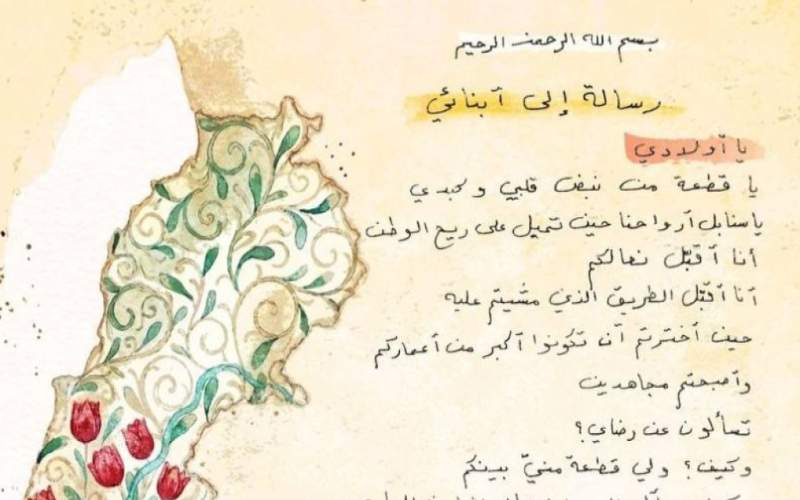 بسم الله الرحمن الرحيم
رسالة إلى أبنائي
يا أولادي
يا قطعة من نبض قلبي وكبدي
يا سنابل أرواحنا حين تميل على ريح الوطن
أنا أقبّل نعالكم
أنا أقبّل الطريق الذي مشيتم عليه
حين أخترتم أن تكونوا أكبر من أعماركم
وأصبحتم مجاهدين
تسألون عن رضاي؟
وكيف؟ ولي قطعة منيّ بينكم